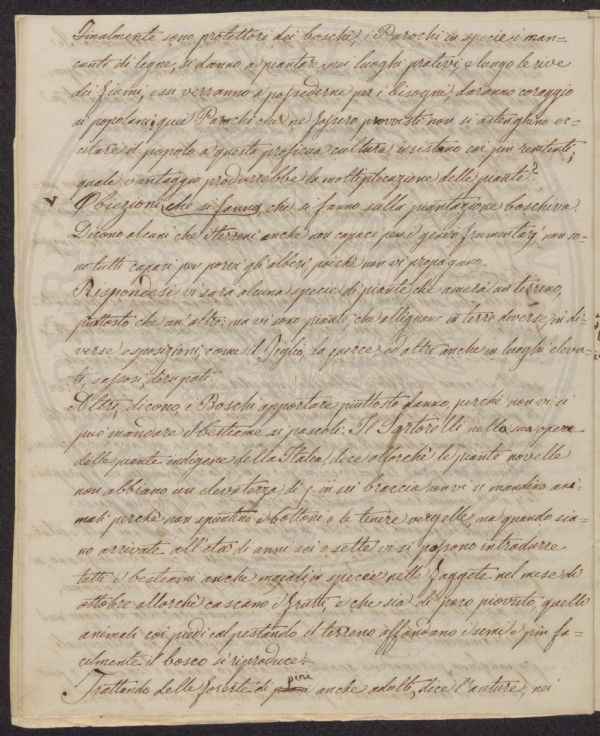 Finalmente sono protettori dei boschi, i Parochi in specie i man=
canti di legne, si danno a piantare nei luoghi prativi, e lungo le rive
dei fiumi, e su verranno a possederne per i bisogni, daranno coraggio
ai popolani: quei Parochi che ne fassero provvisti non si astenghino ec=
citare il popolo a questa proficua cultura, insistano coi più renitenti;
quale vantaggio produrrebbe la moltiplicazione delle piante?
Obiezioni che si fanno che si fanno sulla piantazione boschiva.
Dicono alcuni che i terreni anche non capaci per i generi frumentarj non so=
no tutti capaci per porvi gli alberi poichè non vi propagano.
Rispondesi vi sarà alcuna specie di piante che amerà un terreno
piuttosto che un'altro: ma vi sono piante che allignan in terre diverse, in di=
verse esposizioni, come il Tiglio, la querce, ed altri anche in luoghi eleva=
ti, sassosi, dirupati.
Altri, dicono, i Boschi apportare piuttosto danno, perchè non vi si
può mandare il bestiame ai pascoli. Il Sartorelli nella sua opera
delle piante indigene della Italia, dice allorchè le piante novelle
non abbiano un elevatezza di 5 in sei braccia non vi si mandino ani=
mali perchè non spuntino i bottoni e le tenere vergelle, ma quando sia=
no arrivate all'età di anni sei o sette vi si possono introdurre
tutti i bestiami anche maiali, in specie nelle faggete nel mese di
ottobre allorchè cascano i frutti, e che sia di poco piovuto, quelli
animali coi piedi calpestando il terreno affondano i semi e più fa=
cilmente il bosco si riproduce.
Trattando delle foreste di pini anche adulti, dice l'autore, nei